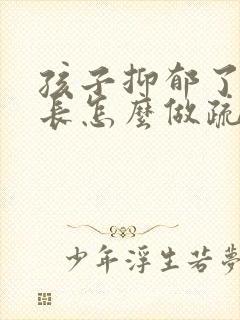 孩子抑郁了
长怎麽做疏
少年浮生若梦